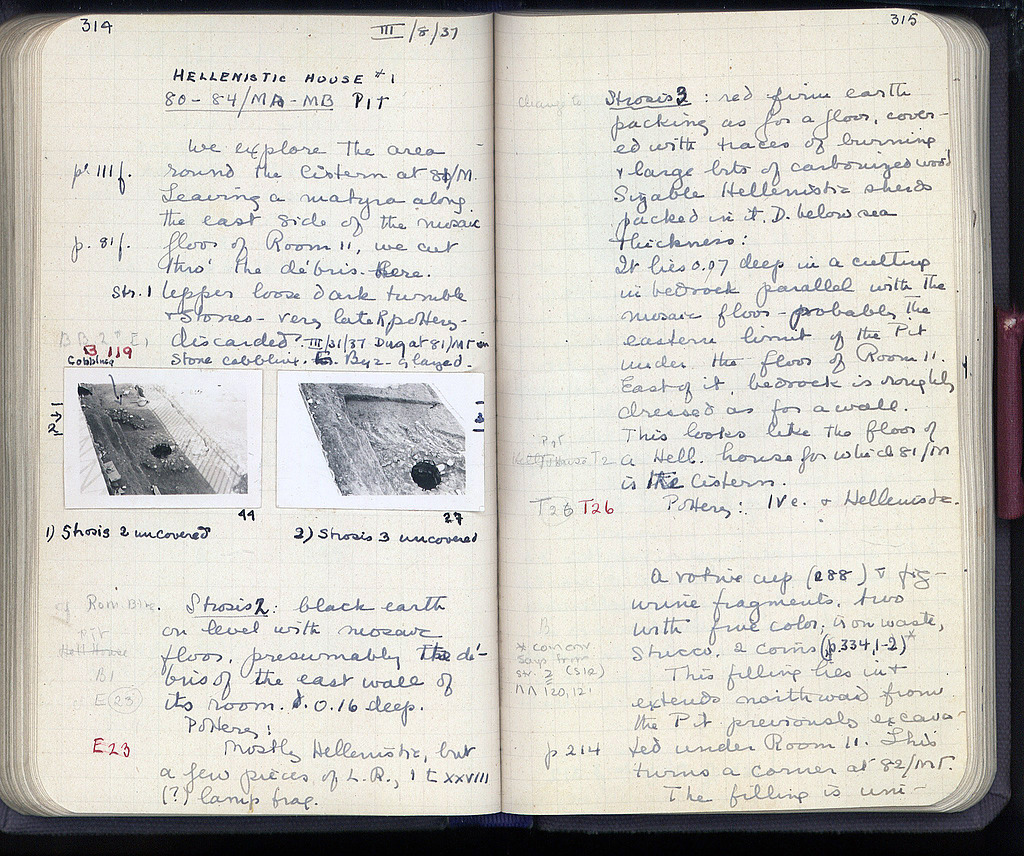 314
III/8/37
HELLENISTIC HOUSE #1
80-84/MA-MB PIT
We explore the area
p. 111 f. round the Cistern at 81/M.
Leaving a martyra along
the east side of the mosaic
p. 81 f. floor of Room 11, we cut
thro' the débris. Here.
Str. 1 Upper loose dark tumble
+ stones - very late R pottery -
discarded. III/31/37 Dug at 81/MT in
B 119
Cobbling stone cobbling. Byz - glazed.
44
27
1) Strosis 2 uncovered
2) Strosis 3 uncovered
cf Rom. Bldg. Strosis 2: black earth
on level with mosaic
Pit
Hell House
floor, presumably the dé-
B1 bris of the east wall of
E (23) its room. D. 0.16 deep.
Pottery:
E23 Mostly Hellenistic, but
a few pieces of L.R., 1 L XXVIII
(?) lamp frag.
315
change to Strosis 3: red firm earth
packing as for a floor, cover-
ed with traces of burning
+ large bits of carbonized wood
Sizable Hellenistic sherds
packed in it. D. below sea
thickness:
It lies 0.07 deep in a cutting
in bedrock parallel with the
mosaic floor - probably the
eastern limit of the Pit
under the floor of Room 11.
East of it, bedrock is roughly
dressed as for a wall.
This looks like the floor of
Pit
Hell House T2 a Hell. house for which 81/M
is the Cistern.
T26 T26 Pottery: IV c. + Hellenistic.
A votive cup (288) + fig-
urine fragments, two
with fine color; iron waste,
B
stucco. 2 coins (p. 334, 1-2)*
* coin conc.
says from
str. 2 (S12)
ΝΛ 120, 121
This filling lies in +
extends northward from
the Pit previously excava-
p 214 ted under Room 11. This
turns a corner at 82/MT.
The filling is uni-